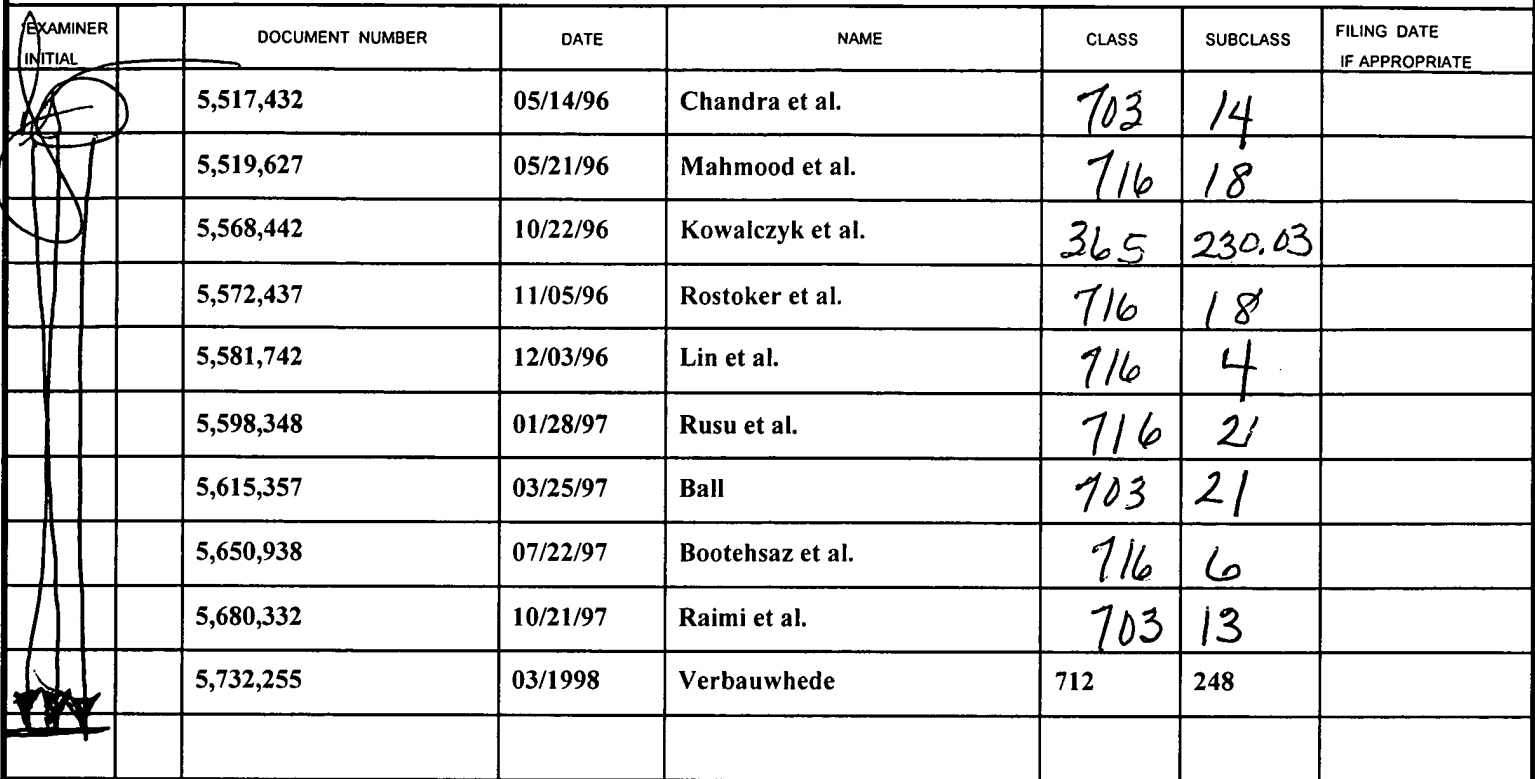 EXAMINER INITIAL DOCUMENT NUMBER DATE NAME CLASS SUBCLASS FILING DATE IF APPROPRIATE
5,517,432 05/14/96 Chandra et al. 703 14
5,519,627 05/21/96 Mahmood et al. 716 18
5,568,442 10/22/96 Kowalczyk et al. 365 230.03
5,572,437 11/05/96 Rostoker et al. 716 18
5,581,742 12/03/96 Lin et al. 716 4
5,598,348 01/28/97 Rusu et al. 716 21
5,615,357 03/25/97 Ball 703 21
5,650,938 07/22/97 Bootehsaz et al. 716 6
5,680,332 10/21/97 Raimi et al. 703 13
5,732,255 03/1998 Verbauwhede 712 248